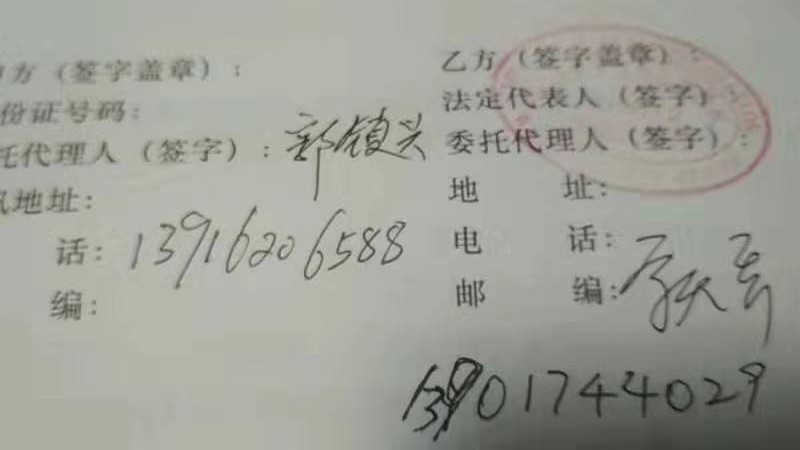 方（签字盖章）：
份证号码：
托代理人（签字）：郭锁兴
地址：
话：13916206588
编：
乙方（签字盖章）：
法定代表人（签字）
委托代理人（签字）：
地 址：
电 话：
邮 编：
13901744029